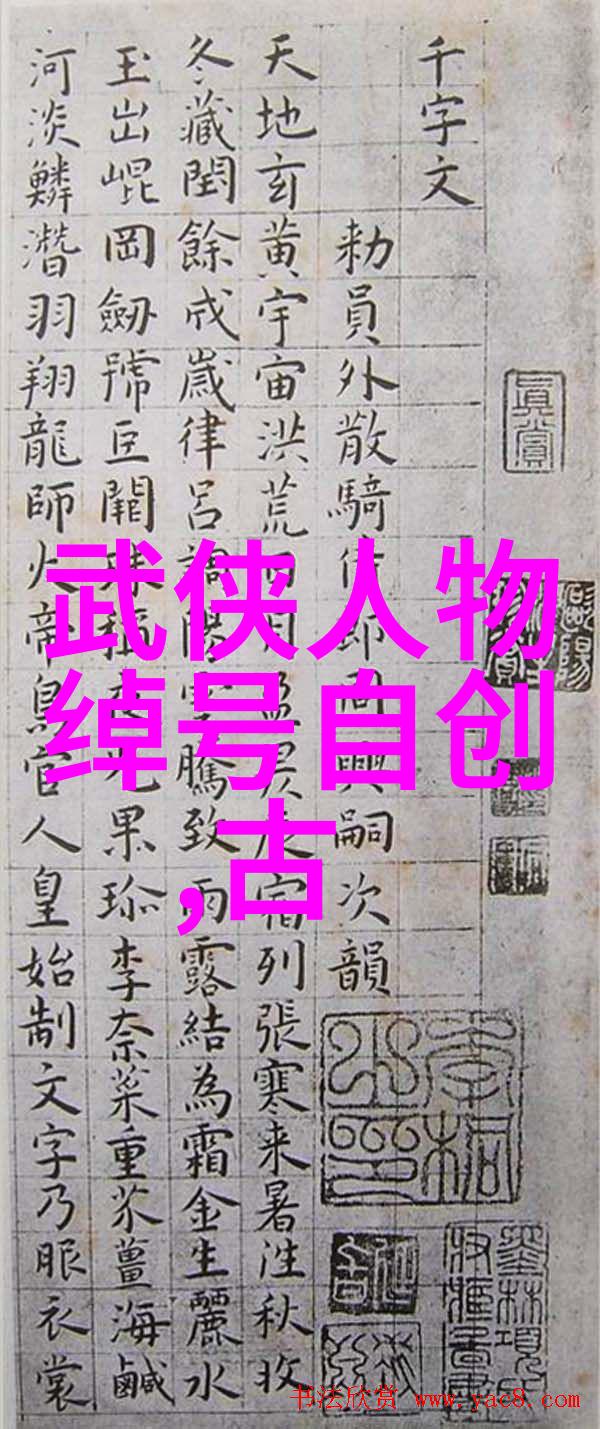 千字文
勑員外散騎侍郎周興嗣次韻
天地玄黄宇宙洪荒日月盈昃辰宿列張寒来暑往秋收
冬藏閏餘成歲律呂調陽雲騰致雨露結為霜金生麗水
玉出崐岡劒號巨闕珠稱夜光果珎李柰菜重芥薑海鹹
河淡鱗潛羽翔龍師火帝鳥官人皇始制文字乃服衣裳
真賞
武侠人物
绰号自创
,古
书法欣赏 www.yac8.com